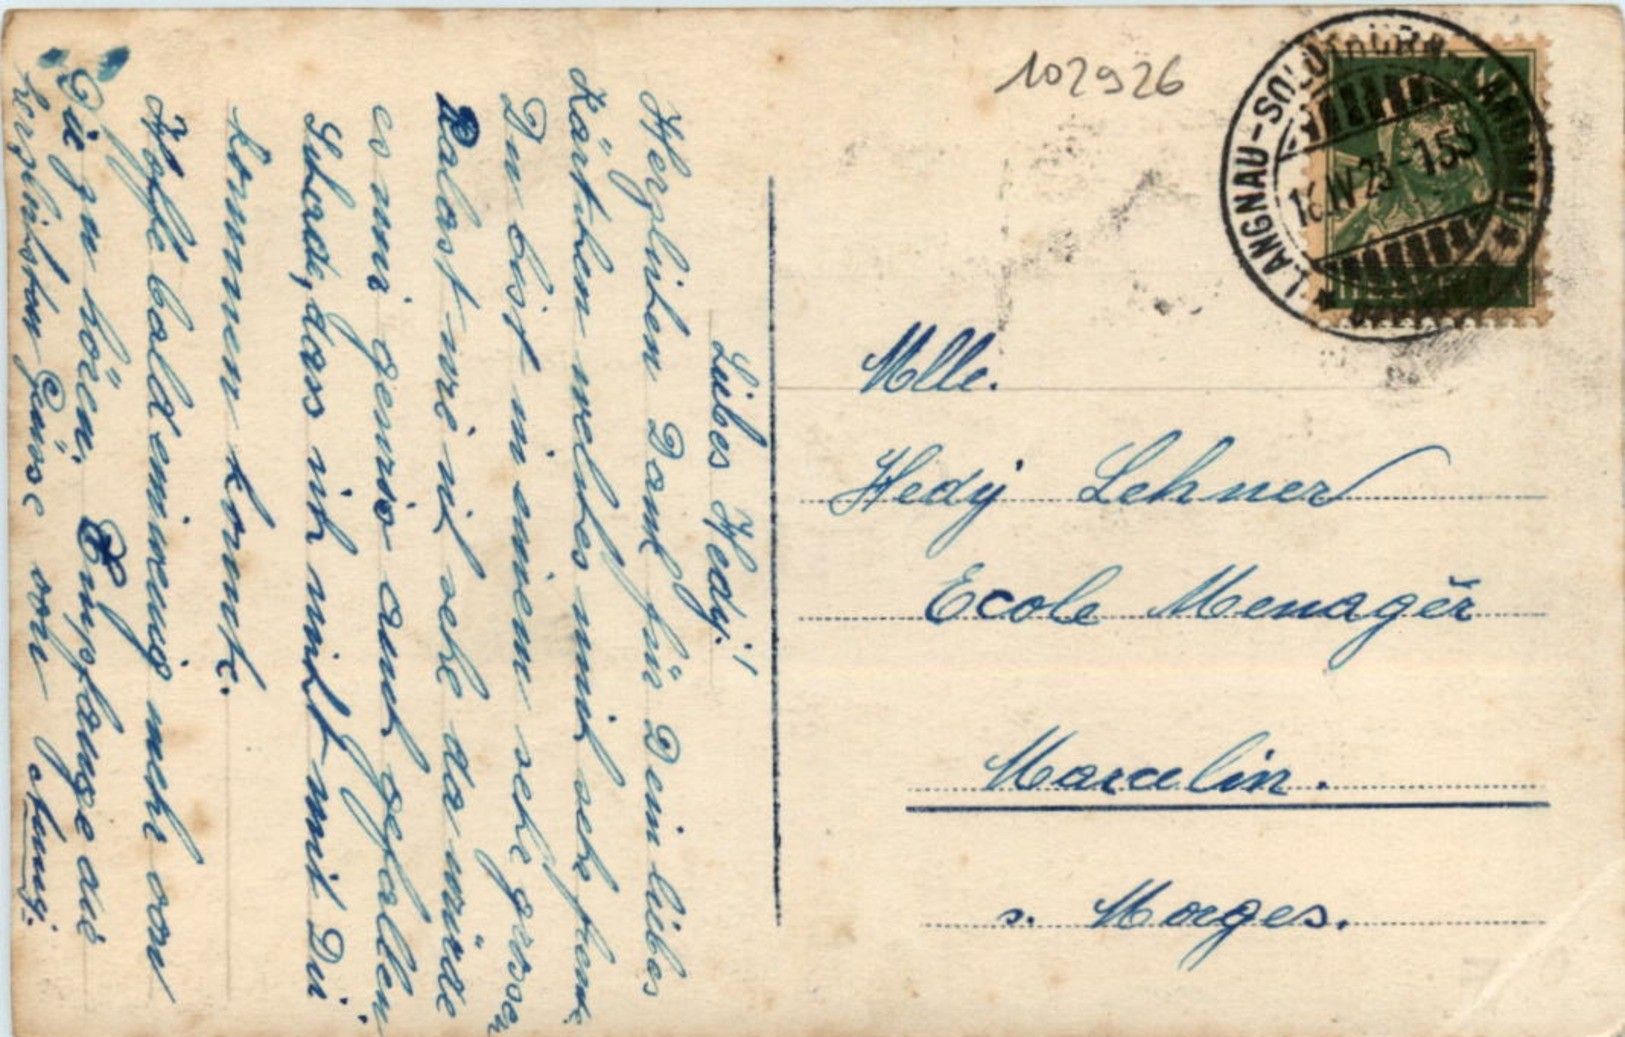 102926
LANGNAU-SOLOTHURN-LANGNAU
16.IV.23-1553
Liebes Hedy!
Herzlichen Dank für Dein liebes
Kärtchen welches mich sehr freut.
Du bist in einem sehr grossen
Palast wie ich sehe da würde
es mir gewiss auch gefallen
Schade, dass ich nicht mit Dir
kommen konnte.
Hoffe bald ein wenig mehr von
Dir zu hören. Empfange die
herzlichsten Grüsse von
Mlle.
Hedy Lehner
Ecole Menagèr
Marcelin.
s. Morges.